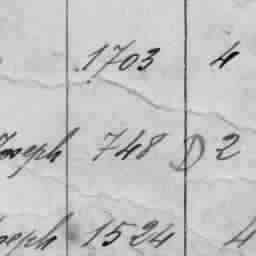 1703 4
Joseph 748 D 2
Joseph 1524 4